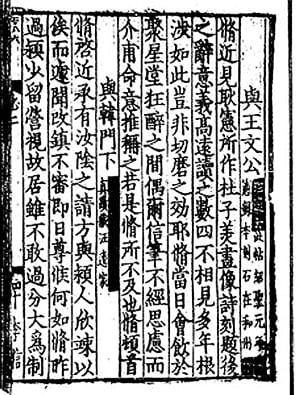 與王文公
此帖紹聖元年
刻石在和州
脩近見耿憲所作杜子美畫像詩刻題後
之辭意義高遠讀之數四不相見多年根
波如此豈非切磨之効耶脩當日會飲於
聚星堂狂醉之間偶爾信筆不經思慮而
介甫命意推稱之若是脩所不及也脩頓首
與韓門下
真蹟藏汪逵家
脩啓近承有汝陰之請方與潁人欣竦以
俟而遽聞改鎮不審即日尊候何如脩昨
過潁少留營視故居雖不敢過分大為制